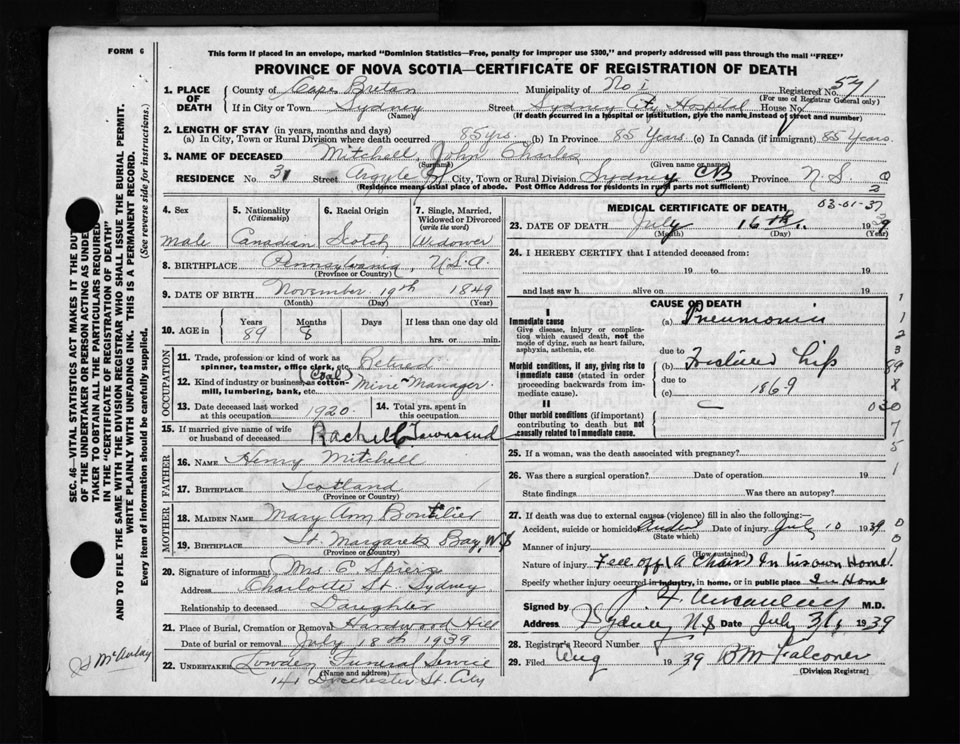 FORM 6
This form if placed in an envelope, marked "Dominion Statistics—Free, penalty for improper use $300," and properly addressed will pass through the mail "FREE"
PROVINCE OF NOVA SCOTIA—CERTIFICATE OF REGISTRATION OF DEATH
1. PLACE OF DEATH
County of Cape Breton Municipality of No 1 Registered No. 571
(For use of Registrar General only)
If in City or Town Sydney Street Sydney City Hospital House No.
(Name) (If death occurred in a hospital or institution, give the name instead of street and number)
2. LENGTH OF STAY (in years, months and days)
(a) In City, Town or Rural Division where death occurred 85 yrs. (b) In Province 85 Years (c) In Canada (if immigrant) 85 Years
3. NAME OF DECEASED Mitchell, John Charles
(Surname) (Given name or names)
RESIDENCE No. 31 Street Argyle St City, Town or Rural Division Sydney CB Province N.S.
(Residence means usual place of abode. Post Office Address for residents in rural parts not sufficient)
4. Sex 5. Nationality (Citizenship) 6. Racial Origin 7. Single, Married, Widowed or Divorced (write the word)
male Canadian Scotch Widower
8. BIRTHPLACE Pennsylvania, U.S.A.
(Province or Country)
9. DATE OF BIRTH November 19th 1849
(Month) (Day) (Year)
10. AGE in Years Months Days If less than one day old
89 8 hrs. or min.
OCCUPATION
11. Trade, profession or kind of work as spinner, teamster, office clerk, etc. Retired
12. Kind of industry or business, as cotton-mill, lumbering, bank, etc. (Coal) Mine Manager.
13. Date deceased last worked at this occupation 1920. 14. Total yrs. spent in this occupation
15. If married give name of wife or husband of deceased Rachell Townsend
FATHER
16. NAME Henry Mitchell
17. BIRTHPLACE Scotland
(Province or Country)
MOTHER
18. MAIDEN NAME Mary Ann Boutilier
19. BIRTHPLACE St. Margarets Bay, N.S
(Province or Country)
20. Signature of informant Mrs. C. Spiers
Address Charlotte St. Sydney
Relationship to deceased Daughter
21. Place of Burial, Cremation or Removal Hardwood Hill
Date of burial or removal July 18th 1939
22. UNDERTAKER Lowden Funeral Service
(Name and address)
141 Dorchester St. City
MEDICAL CERTIFICATE OF DEATH
03-01-37
23. DATE OF DEATH July 16th, 1939
(Month) (Day) (Year)
24. I HEREBY CERTIFY that I attended deceased from:
19 to 19
and last saw h alive on 19
CAUSE OF DEATH
I
Immediate cause (a) Pneumonia
Give disease, injury or complication which caused death, not the mode of dying, such as heart failure, asphyxia, asthenia, etc.
due to
Morbid conditions, if any, giving rise to immediate cause (stated in order proceeding backwards from immediate cause). (b) Fractured hip
due to
(c) 1869
II
Other morbid conditions (if important) contributing to death but not causally related to immediate cause.
25. If a woman, was the death associated with pregnancy?
26. Was there a surgical operation? Date of operation 19
State findings Was there an autopsy?
27. If death was due to external causes (violence) fill in also the following:—
Accident, suicide or homicide Date of injury July 10 1939
(State which)
Manner of injury
(How sustained)
Nature of injury Fell off (A Chair) In his own Home.
Specify whether injury occurred in industry, in home, or in public place In Home
Signed by M.D.
Address Sydney NS Date July 31, 1939
28. Registrar's Record Number
29. Filed Aug 1939 Falconer
(Division Registrar)
SEC. 46—VITAL STATISTICS ACT MAKES IT THE DUTY
OF THE UNDERTAKER OR PERSON ACTING AS UNDER-
TAKER TO OBTAIN ALL THE PARTICULARS REQUIRED
IN THE "CERTIFICATE OF REGISTRATION OF DEATH"
AND TO FILE THE SAME WITH THE DIVISION REGISTRAR WHO SHALL ISSUE THE BURIAL PERMIT.
WRITE PLAINLY WITH UNFADING INK. THIS IS A PERMANENT RECORD.
Every item of information should be carefully supplied. (See reverse side for instructions.)
McAulay